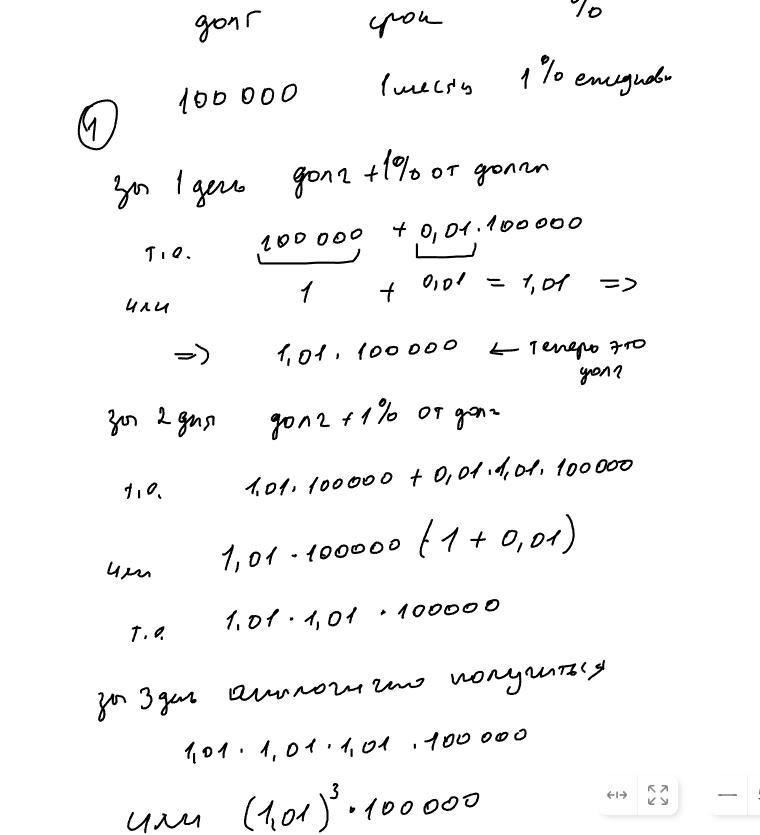 долг срок %
① 100 000 1 месяц 1% ежедневн
за 1 день долг + 1% от долга
т.о. 100 000 + 0,01 · 100000
или 1 + 0,01 = 1,01 =>
=> 1,01 · 100 000 ← теперь это
долг
за 2 дня долг + 1% от долг
т.о. 1,01 · 100000 + 0,01 · 1,01 · 100000
или 1,01 · 100000 (1 + 0,01)
т.о. 1,01 · 1,01 · 100000
за 3 день аналогично получиться
1,01 · 1,01 · 1,01 · 100 000
или (1,01)³ · 100000